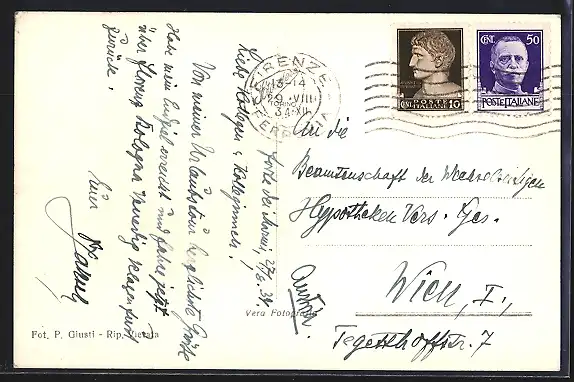 Forte dei Marmi, 27/8. 34.
Liebe Kollegen u. Kolleginnen!
Von meiner Urlaubstour herzlichste Grüße
Habe mein Endziel erreicht und fahre jetzt
über Florenz Bologna Venedig Klagenfurt
zurück.
Euer
FIRENZE
13-14
29 VIII
TORINO
34-XII
FERROVIA
CENT. POSTE 10
ITALIANE
CENT. 50
POSTE ITALIANE
An die
Beamtenschaft der Wechselseitigen
Hypotheken Vers. Ges.
Wien, I.,
Tegetthoffstr. 7
Austria
Vera Fotografia
Fot. P. Giusti - Rip. Vietata